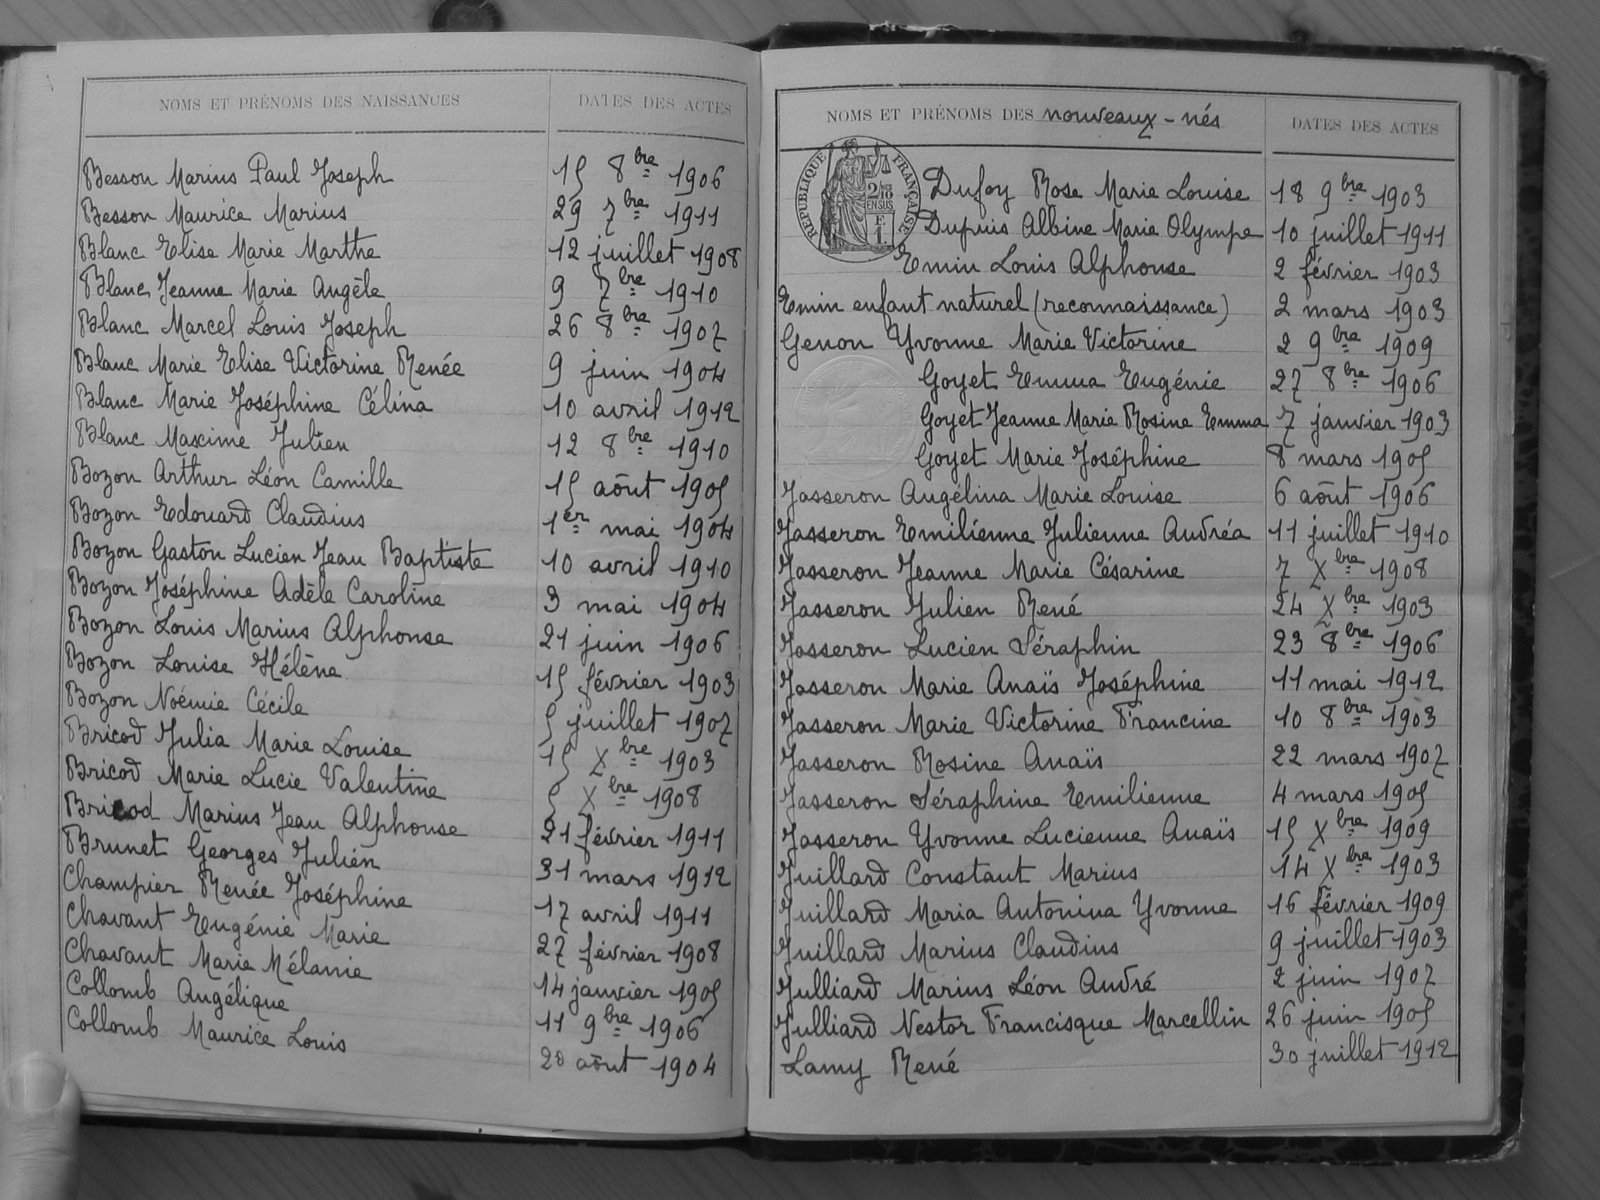 NOMS ET PRÉNOMS DES NAISSANCES DATES DES ACTES
Besson Marius Paul Joseph 15 8bre 1906
Besson Maurice Marius 29 7bre 1911
Blanc Elise Marie Marthe 12 juillet 1908
Blanc Jeanne Marie Angèle 9 7bre 1910
Blanc Marcel Louis Joseph 26 8bre 1907
Blanc Marie Elise Victorine Renée 9 juin 1904
Blanc Marie Joséphine Célina 10 avril 1912
Blanc Maxime Julien 12 8bre 1910
Bozon Arthur Léon Camille 15 août 1905
Bozon Edouard Claudius 1er mai 1904
Bozon Gaston Lucien Jean Baptiste 10 avril 1910
Bozon Joséphine Adèle Caroline 3 mai 1904
Bozon Louis Marius Alphonse 21 juin 1906
Bozon Louise Hélène 15 février 1903
Bozon Noémie Cécile 5 juillet 1907
Bricod Julia Marie Louise 15 Xbre 1903
Bricod Marie Lucie Valentine 5 Xbre 1908
Bricod Marius Jean Alphonse 21 février 1911
Brunet Georges Julien 31 mars 1912
Champier Renée Joséphine 17 avril 1911
Chavant Eugénie Marie 27 février 1908
Chavant Marie Mélanie 14 janvier 1905
Collomb Angélique 11 9bre 1906
Collomb Maurice Louis 20 août 1904
NOMS ET PRÉNOMS DES nouveaux-nés DATES DES ACTES
RÉPUBLIQUE FRANÇAISE
2/10
EN SUS
F.
1.
Dufoy Rose Marie Louise 18 9bre 1903
Dupuis Albine Marie Olympe 10 juillet 1911
Emin Louis Alphonse 2 février 1903
Emin enfant naturel (reconnaissance) 2 mars 1903
Genon Yvonne Marie Victorine 2 9bre 1909
Goyet Emma Eugénie 27 8bre 1906
Goyet Jeanne Marie Rosine Emma 7 janvier 1903
Goyet Marie Joséphine 8 mars 1905
Jasseron Angelina Marie Louise 6 août 1906
Jasseron Emilienne Julienne Andréa 11 juillet 1910
Jasseron Jeanne Marie Césarine 7 Xbre 1908
Jasseron Julien René 24 Xbre 1903
Jasseron Lucien Séraphin 23 8bre 1906
Jasseron Marie Anaïs Joséphine 11 mai 1912
Jasseron Marie Victorine Francine 10 8bre 1903
Jasseron Rosine Anaïs 22 mars 1907
Jasseron Séraphine Emilienne 4 mars 1905
Jasseron Yvonne Lucienne Anaïs 15 Xbre 1909
Juillard Constant Marius 14 Xbre 1903
Juillard Maria Antonina Yvonne 16 février 1909
Juillard Marius Claudius 9 juillet 1903
Julliard Marius Léon André 2 juin 1907
Julliard Nestor Francisque Marcellin 26 juin 1905
Lamy René 30 juillet 1912